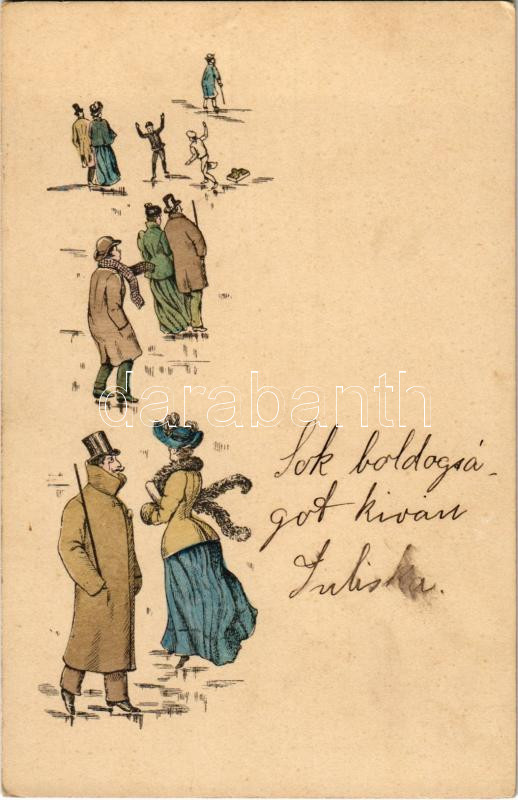 darabanth
Sok boldogsá-
got kiván
Juliska.